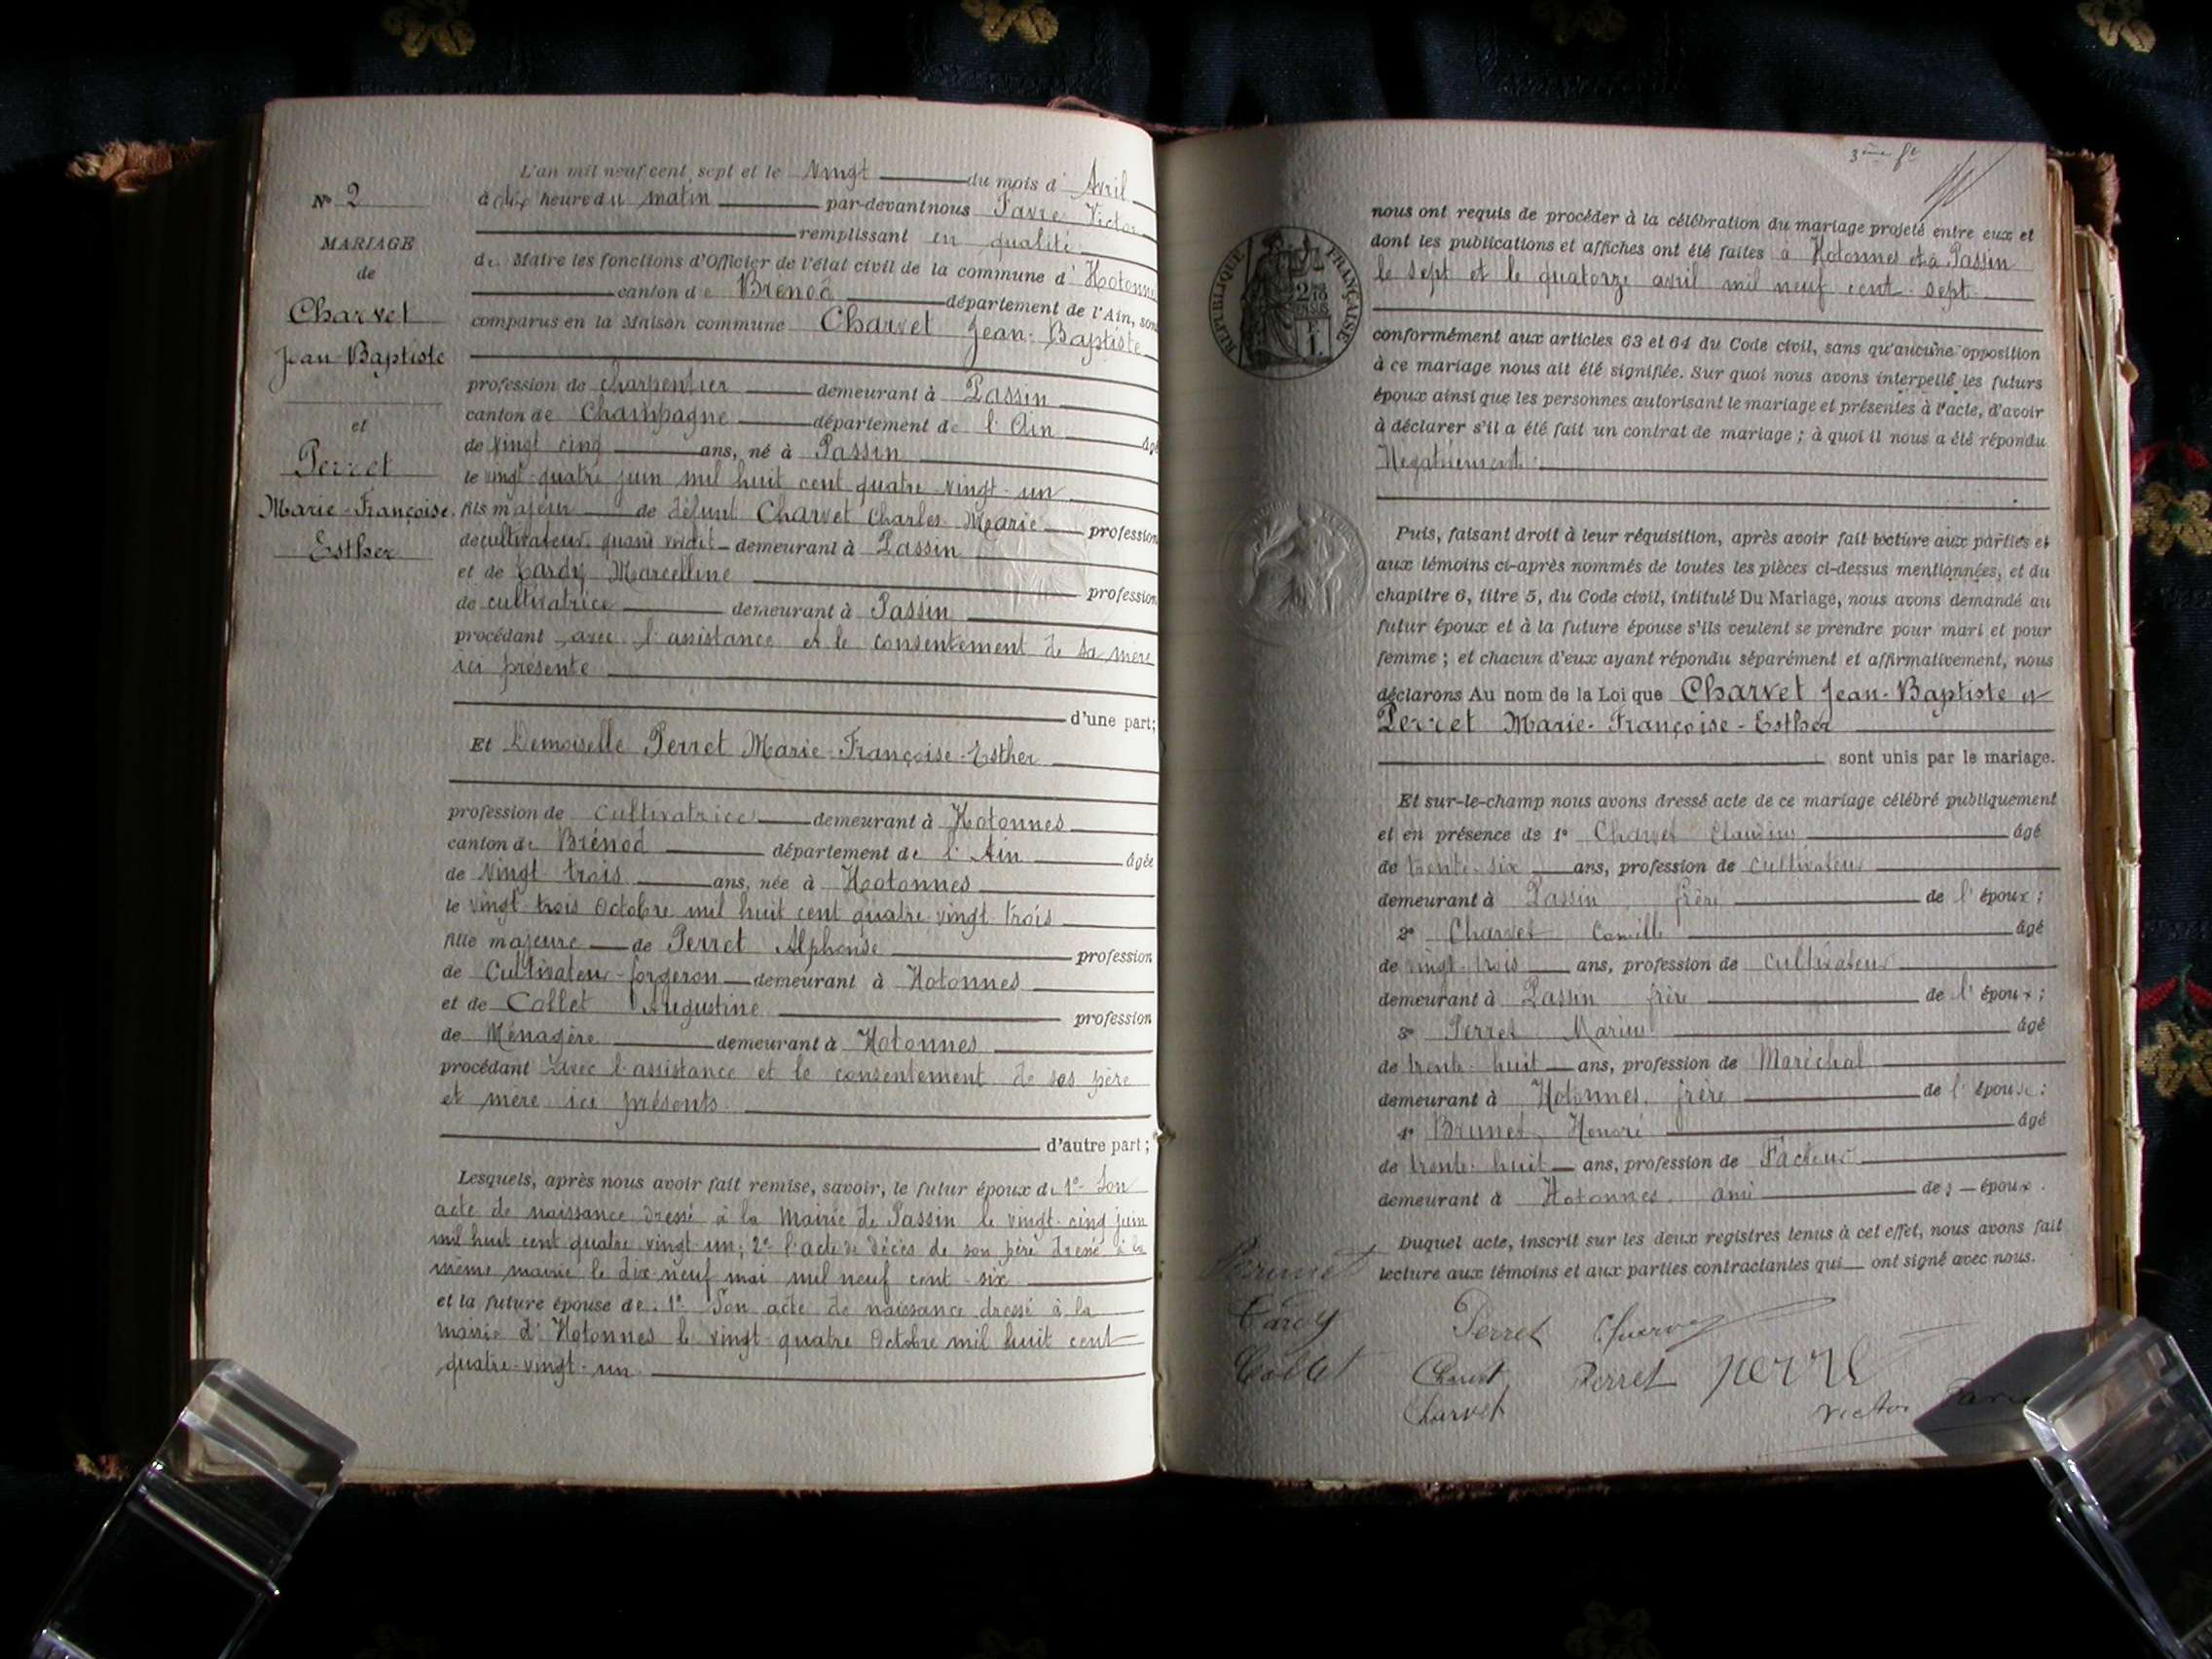 N° 2
MARIAGE
de
Charvet
Jean-Baptiste
et
Perret
Marie-Françoise.
Esther
L'an mil neuf cent sept et le vingt du mois d' Avril
à dix heure du matin par-devant nous Favre Victor
remplissant en qualité
de Maire les fonctions d'Officier de l'état civil de la commune d' Hotonnes
canton de Brénod département de l'Ain, sont
comparus en la Maison commune Charvet Jean-Baptiste
profession de charpentier demeurant à Passin
canton de Champagne département de l'Ain âgé
de vingt cinq ans, né à Passin
le vingt-quatre juin mil huit cent quatre-vingt-un
fils majeur de défunt Charvet Charles Marie profession
de cultivateur quand vivait demeurant à Passin
et de Tardy Marcelline profession
de cultivatrice demeurant à Passin
procédant avec l'assistance et le consentement de sa mère
ici présente
d'une part;
Et Demoiselle Perret Marie-Françoise-Esther
profession de Cultivatrice demeurant à Hotonnes
canton de Brénod département de l'Ain âgée
de vingt trois ans, née à Hotonnes
le vingt-trois Octobre mil huit cent quatre vingt-trois
fille majeure de Perret Alphonse profession
de Cultivateur-forgeron demeurant à Hotonnes
et de Collet Augustine profession
de Ménagère demeurant à Hotonnes
procédant avec l'assistance et le consentement de ses père
et mère ici présents
d'autre part;
Lesquels, après nous avoir fait remise, savoir, le futur époux de 1° Son
acte de naissance dressé à la Mairie de Passin le vingt-cinq juin
mil huit cent quatre vingt-un; 2° l'acte de décès de son père dressé à la
même mairie le dix-neuf mai mil neuf cent-six
et la future épouse de 1° Son acte de naissance dressé à la
mairie d'Hotonnes le vingt-quatre Octobre mil huit cent
quatre-vingt-un
3ème ft
nous ont requis de procéder à la célébration du mariage projeté entre eux et
dont les publications et affiches ont été faites à Hotonnes et à Passin
le sept et le quatorze avril mil neuf cent sept
RÉPUBLIQUE FRANÇAISE
conformément aux articles 63 et 64 du Code civil, sans qu'aucune opposition
à ce mariage nous ait été signifiée. Sur quoi nous avons interpellé les futurs
époux ainsi que les personnes autorisant le mariage et présentes à l'acte, d'avoir
à déclarer s'il a été fait un contrat de mariage; à quoi il nous a été répondu
Négativement
Puis, faisant droit à leur réquisition, après avoir fait lecture aux parties et
aux témoins ci-après nommés de toutes les pièces ci-dessus mentionnées, et du
chapitre 6, titre 5, du Code civil, intitulé Du Mariage, nous avons demandé au
futur époux et à la future épouse s'ils veulent se prendre pour mari et pour
femme; et chacun d'eux ayant répondu séparément et affirmativement, nous
déclarons Au nom de la Loi que Charvet Jean-Baptiste et
Perret Marie-Françoise-Esther
sont unis par le mariage.
Et sur-le-champ nous avons dressé acte de ce mariage célébré publiquement
et en présence de 1° Charvet Claudius âgé
de trente-six ans, profession de cultivateur
demeurant à Passin frère de l'époux;
2° Charvet Camille âgé
de vingt-trois ans, profession de cultivateur
demeurant à Passin frère de l'époux;
3° Perret Marius âgé
de trente-huit ans, profession de Maréchal
demeurant à Hotonnes, frère de l'épouse;
4° Brunet Honoré âgé
de trente-huit ans, profession de Facteur
demeurant à Hotonnes ami des époux.
Duquel acte, inscrit sur les deux registres tenus à cet effet, nous avons fait
lecture aux témoins et aux parties contractantes qui ont signé avec nous.
Brunet
Tardy Perret Charvet
Collet Charvet Perret perret
Charvet Victor Favre